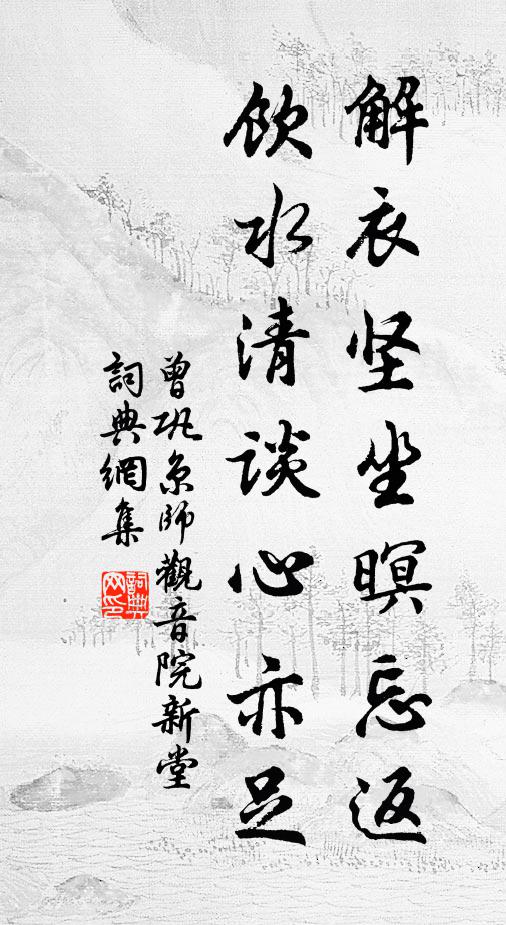 解衣坚坐暝忘返
饮水清谈心亦足
曾巩京師觀音院新堂
詞典網集
詞典网印